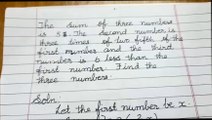 The sum of three numbers
is 58. The second number is
three times of two fifth of the
first number and the third
number is 6 less than the
first number. Find the
three numbers
Soln:
Let the first number be x